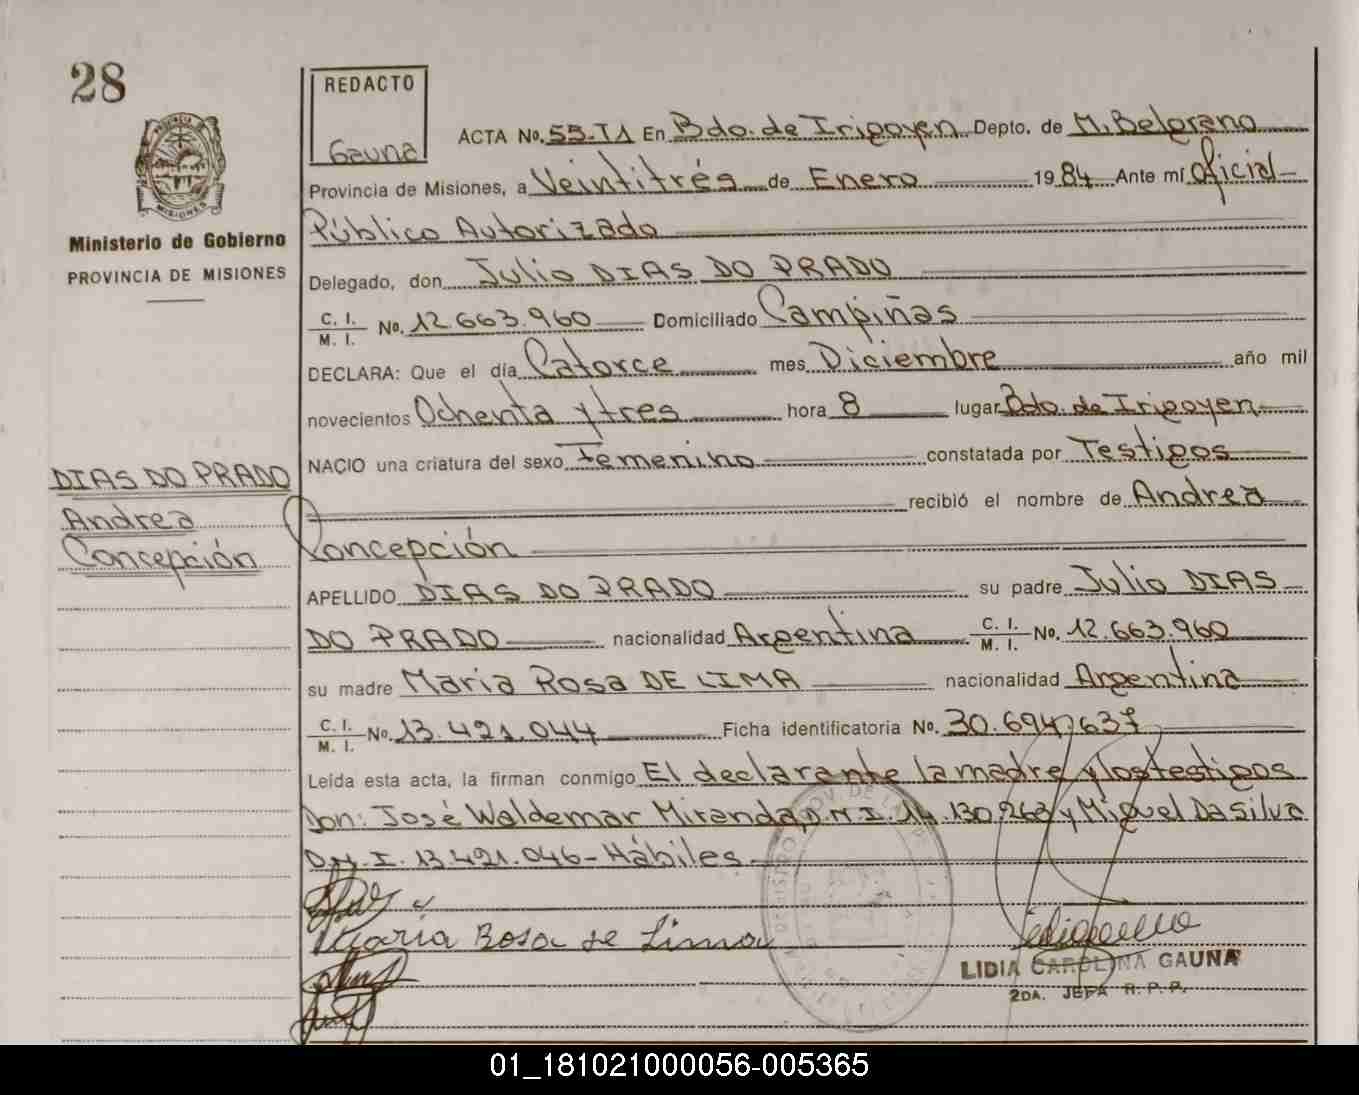 28
REDACTO
Gauna
ACTA No. 55-T1 En Bdo. de Irigoyen Depto. de M. Belgrano
Provincia de Misiones, a Veintitrés de Enero 1984 Ante mí Oficial
Público Autorizado
Ministerio de Gobierno
PROVINCIA DE MISIONES
Delegado, don Julio DIAS DO PRADO
C. I.
M. I. No. 12.663.960 Domiciliado Campiñas
DECLARA: Que el día Catorce mes Diciembre año mil
novecientos Ochenta y tres hora 8 lugar Bdo. de Irigoyen
NACIO una criatura del sexo femenino constatada por Testigos
DIAS DO PRADO
Andrea
Concepción
recibió el nombre de Andrea
Concepción
APELLIDO DIAS DO PRADO su padre Julio DIAS
DO PRADO nacionalidad Argentina C. I.
M. I. No. 12.663.960
su madre Maria Rosa DE LIMA nacionalidad Argentina
C. I.
M. I. No. 13.421.044 Ficha identificatoria No. 30.694.637
Leída esta acta, la firman conmigo El declarante la madre y los testigos
Don: José Waldemar Miranda, D.N.I. 14.130.263 y Miguel Da Silva
D.N.I. 13.421.046 - Hábiles
Maria Rosa de Lima
LIDIA CAROLINA GAUNA
2DA. JEFA R. P. P.
01_181021000056-005365